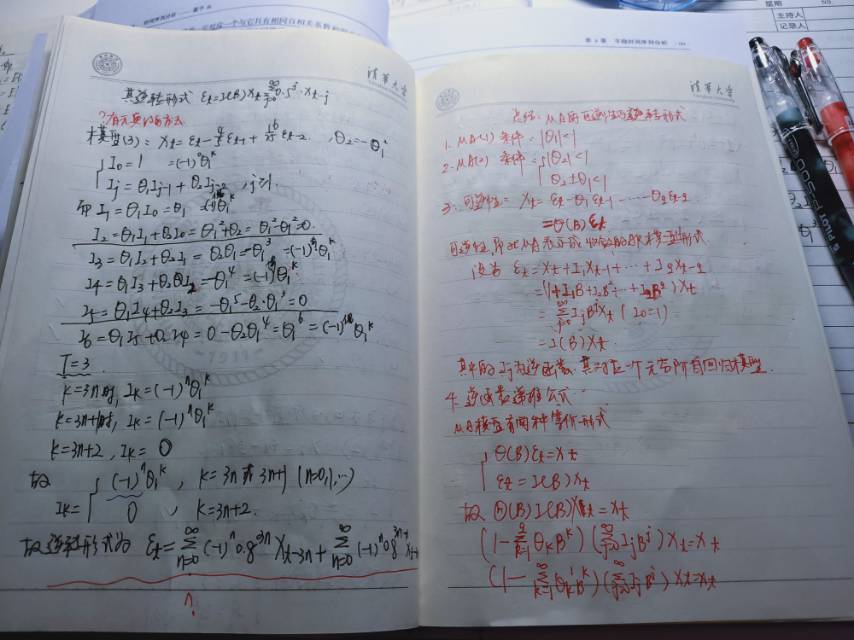 时间序列分析
清华大学
其逆转形式 εt=I(B)Xt=∑_{j=0}^∞ 0.5^j·Xt-j
?有无更好的方法
模型(3): Xt=εt-4/5 εt-1+16/25 εt-2, θ2=-θ1²
{ I0=1 =(-1)^0 θ1^k
Ij=θ1Ij-1+θ2Ij-2, j≥1
即 I1=θ1I0=θ1
I2=θ1I1+θ2I0=θ1²+θ2=θ1²-θ1²=0
I3=θ1I2+θ2I1=θ2θ1=-θ1³=(-1)θ1^k
I4=θ1I3+θ2I2=-θ1^4=(-1)θ1^k
I5=θ1I4+θ2I3=-θ1^5-θ2·θ1³=0
I6=θ1I5+θ2I4=0-θ2θ1^4=θ1^6=θ1^k
T=3
k=3n时, Ik=(-1)^n θ1^k
k=3n+1时, Ik=(-1)^n θ1^k
k=3n+2, Ik=0
故 Ik= { (-1)^n θ1^k, k=3n或3n+1 (n=0,1,…)
0, k=3n+2.
故逆转形式为 εt=∑_{n=0}^∞(-1)^n 0.8^{3n} Xt-3n+∑_{n=0}^∞(-1)^n 0.8^{3n+1}
?
清华大学
总结: MA的可逆性与逆转形式
1. MA(1) 条件: |θ1|<1
2. MA(2) 条件 { |θ2|<1
θ2±θ1<1
3. 可逆性: Xt=εt-θ1εt-1-……-θqεt-q
=θ(B)εt
可逆性,即把MA表示成收敛的AR模型形式
设为 εt=Xt+I1Xt-1+…+IqXt-q
=(1+I1B+I2B²+…+IqB^q)Xt
=∑_{j=0}^∞ IjB^jXt (I0=1)
=I(B)Xt
其中的Ij为逆函数,其对应一个无穷阶自回归模型.
4. 逆函数递推公式
MA模型有两种等价形式
{ θ(B)εt=Xt
εt=I(B)Xt
故 Θ(B)I(B)Xt=Xt
(1-∑_{k=1}^q θkB^k)(∑_{j=0}^∞ IjB^j)Xt=Xt
(1-∑_{k=1}^∞ θk'B^k)(∑_{j=0}^∞ IjB^j)Xt=Xt
星期
主持人
记录人